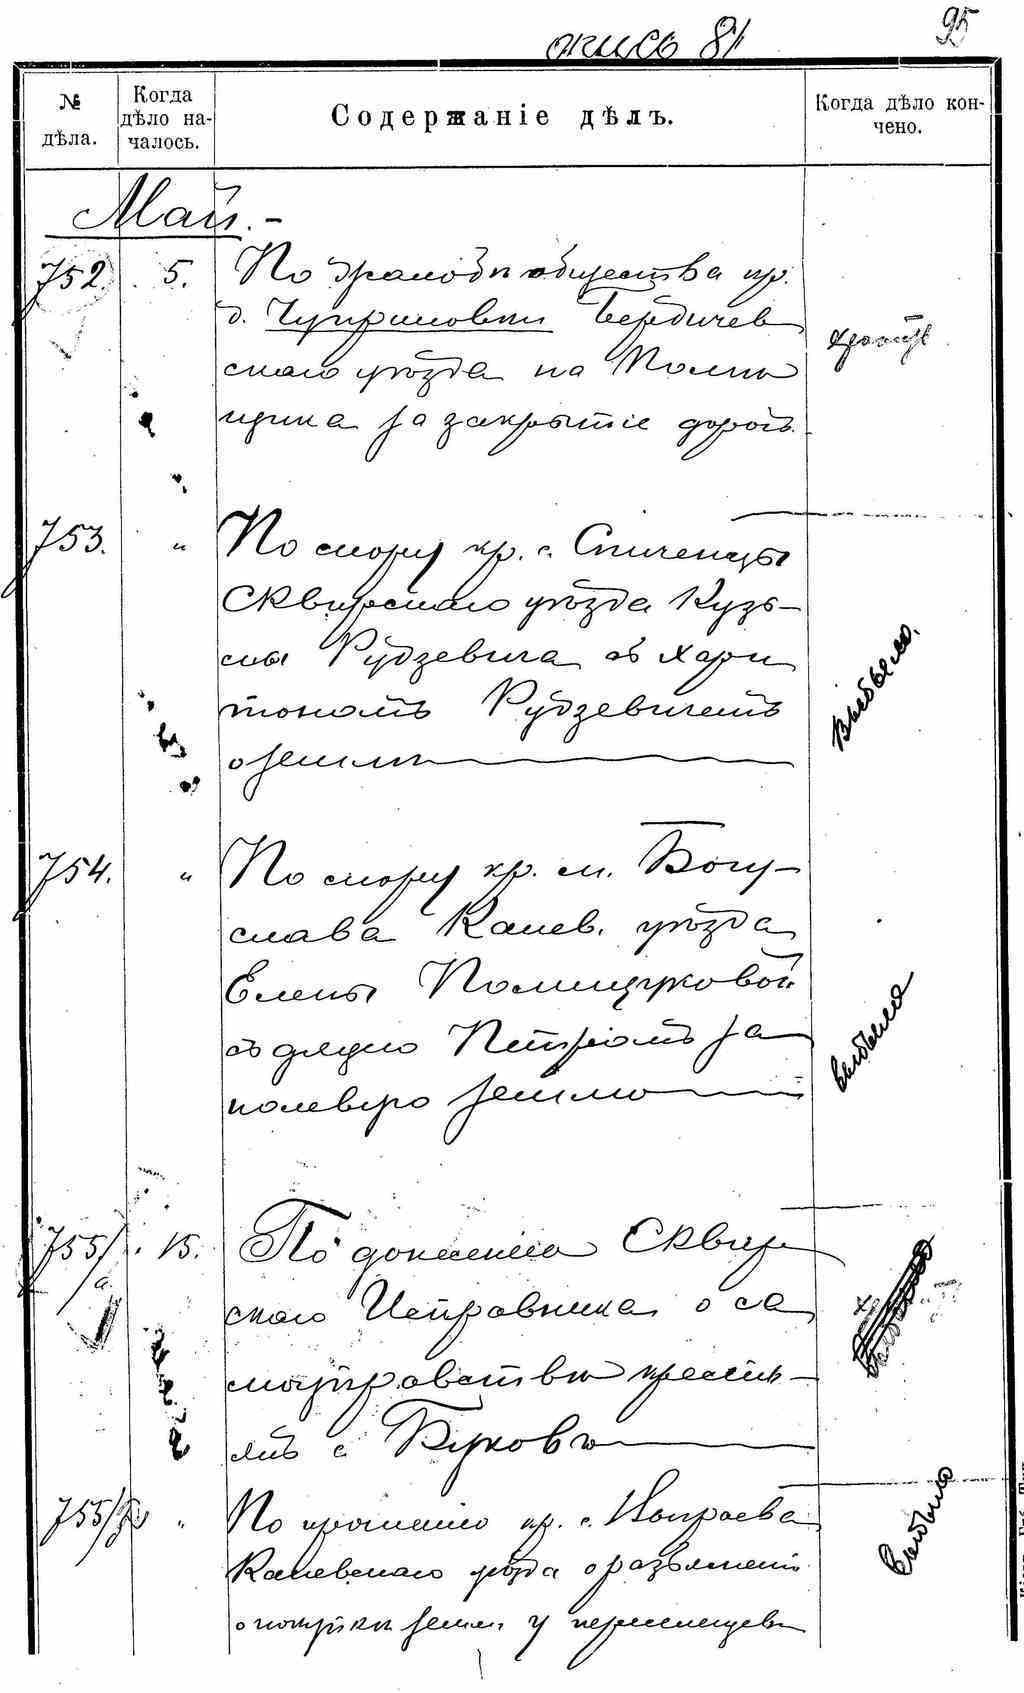 опись 81
95
№ дѣла.
Когда дѣло на-
чалось.
Содержаніе дѣлъ.
Когда дѣло кон-
чено.
Май.-
752. 5. По жалобѣ общества кр.
д. Чуприновки Бердичев
скаго уѣзда на Помѣ
щика за закрытіе дорогъ
753. " По спору кр. с. Спиченцы
Сквирскаго уѣзда Кузь-
мы Рудзевича съ Хари
тономъ Рудзевичемъ
о землѣ
выбыло.
754. " По спору кр. м. Богу-
слава Канев. уѣзда
Елены Полищуковой
съ дядею Петромъ за
полевую землю
выбыло
755/а 15. По донесенію Сквир
скаго Исправника о са
моуправствѣ крестьн-
янъ с. Буковъ
755/б " По прошенію кр. с.
Каневскаго уѣзда о разъясненіи
о покупки земли у
выбыло